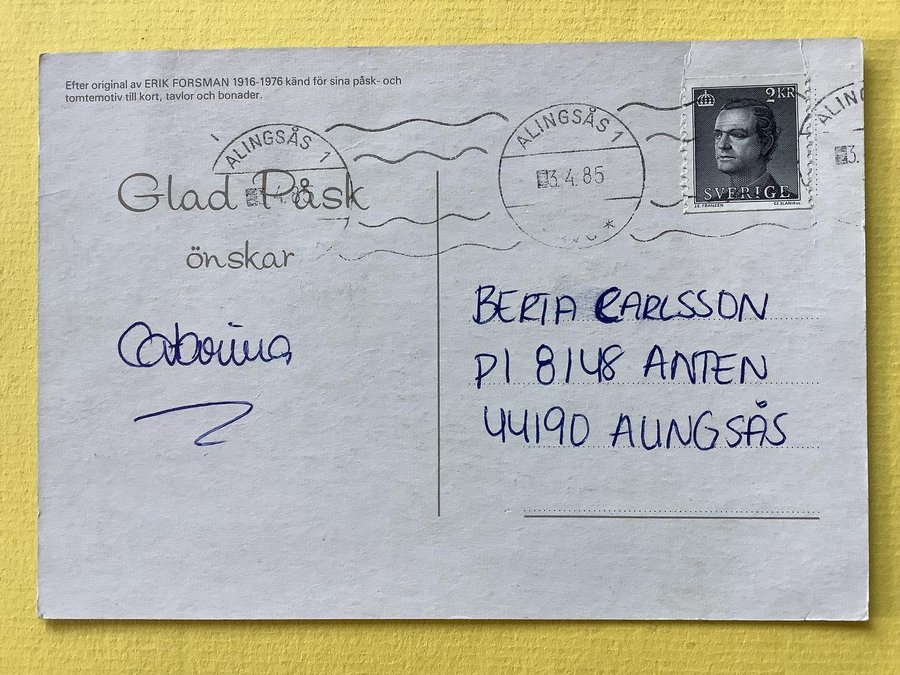 Efter original av ERIK FORSMAN 1916-1976 känd för sina påsk- och
tomtemotiv till kort, tavlor och bonader.
ALINGSÅS 1
ALINGSÅS 1
3.4.85
ALING
3.
2KR
SVERIGE
Glad Påsk
önskar
BERTA CARLSSON
Pl 8148 ANTEN
44190 ALINGSÅS